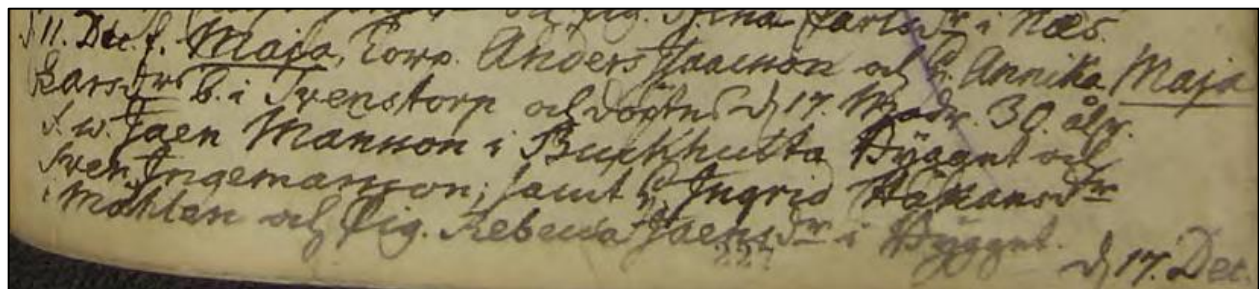 och Pig. Stina Carlsdr i Näs.
d 11. Dec. f. Maja, Corp. Anders Isacsson och h. Annika Maja
Larsdr b. i Svenstorp och döptes d 17. Modr. 30. ålr.
f. w. Jaen Manson i Buskhutta Bÿggnt och
Sven Ingemarsson; samt h. Ingrid Håkansdr
i Möhlan och Pig. Rebecca Jaensdr i Bÿggnt.
227
d 17. Dec.